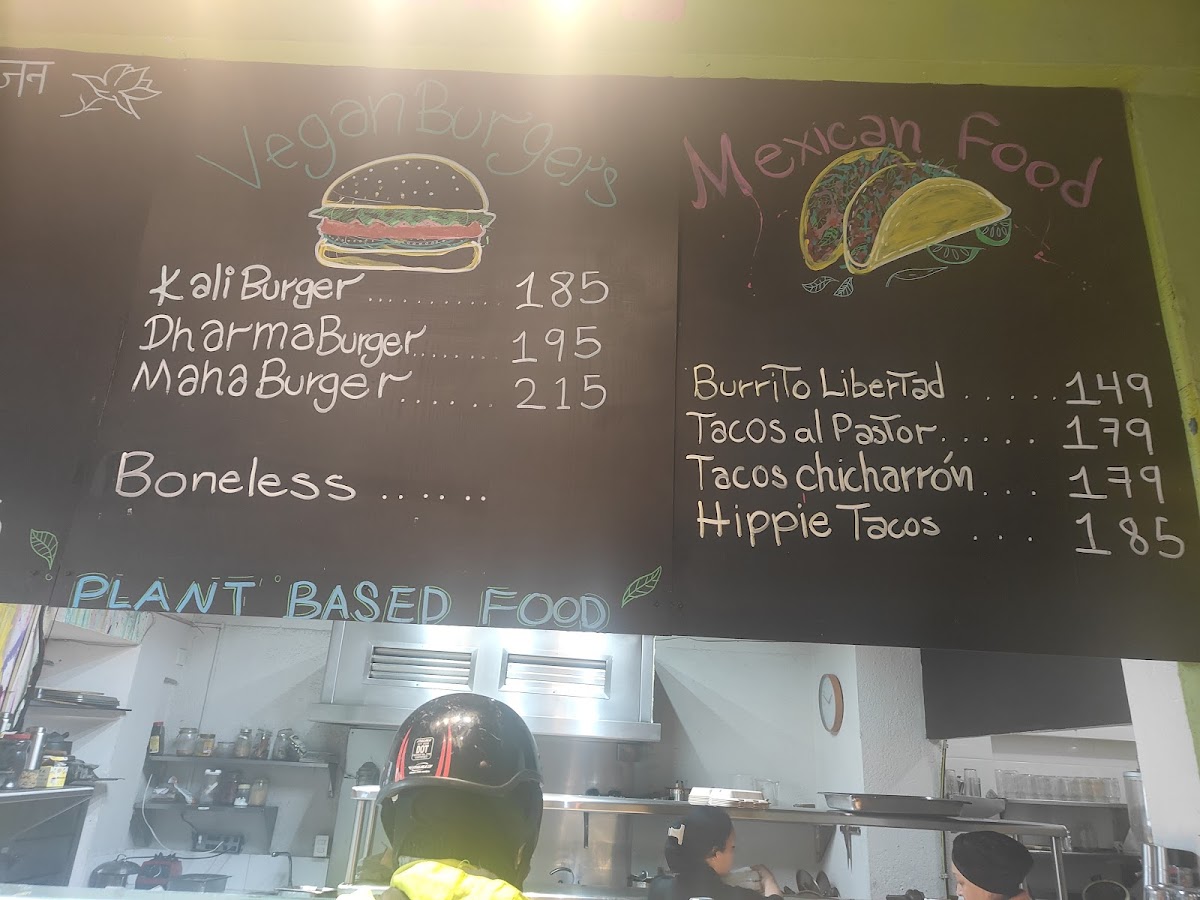 जन
Vegan Burgers
Kali Burger ......... 185
Dharma Burger ....... 195
Maha Burger ....... 215
Boneless ......
PLANT BASED FOOD
Mexican Food
Burrito Libertad ...... 149
Tacos al Pastor ..... 179
Tacos chicharrón ... 179
Hippie Tacos ... 185
DOT